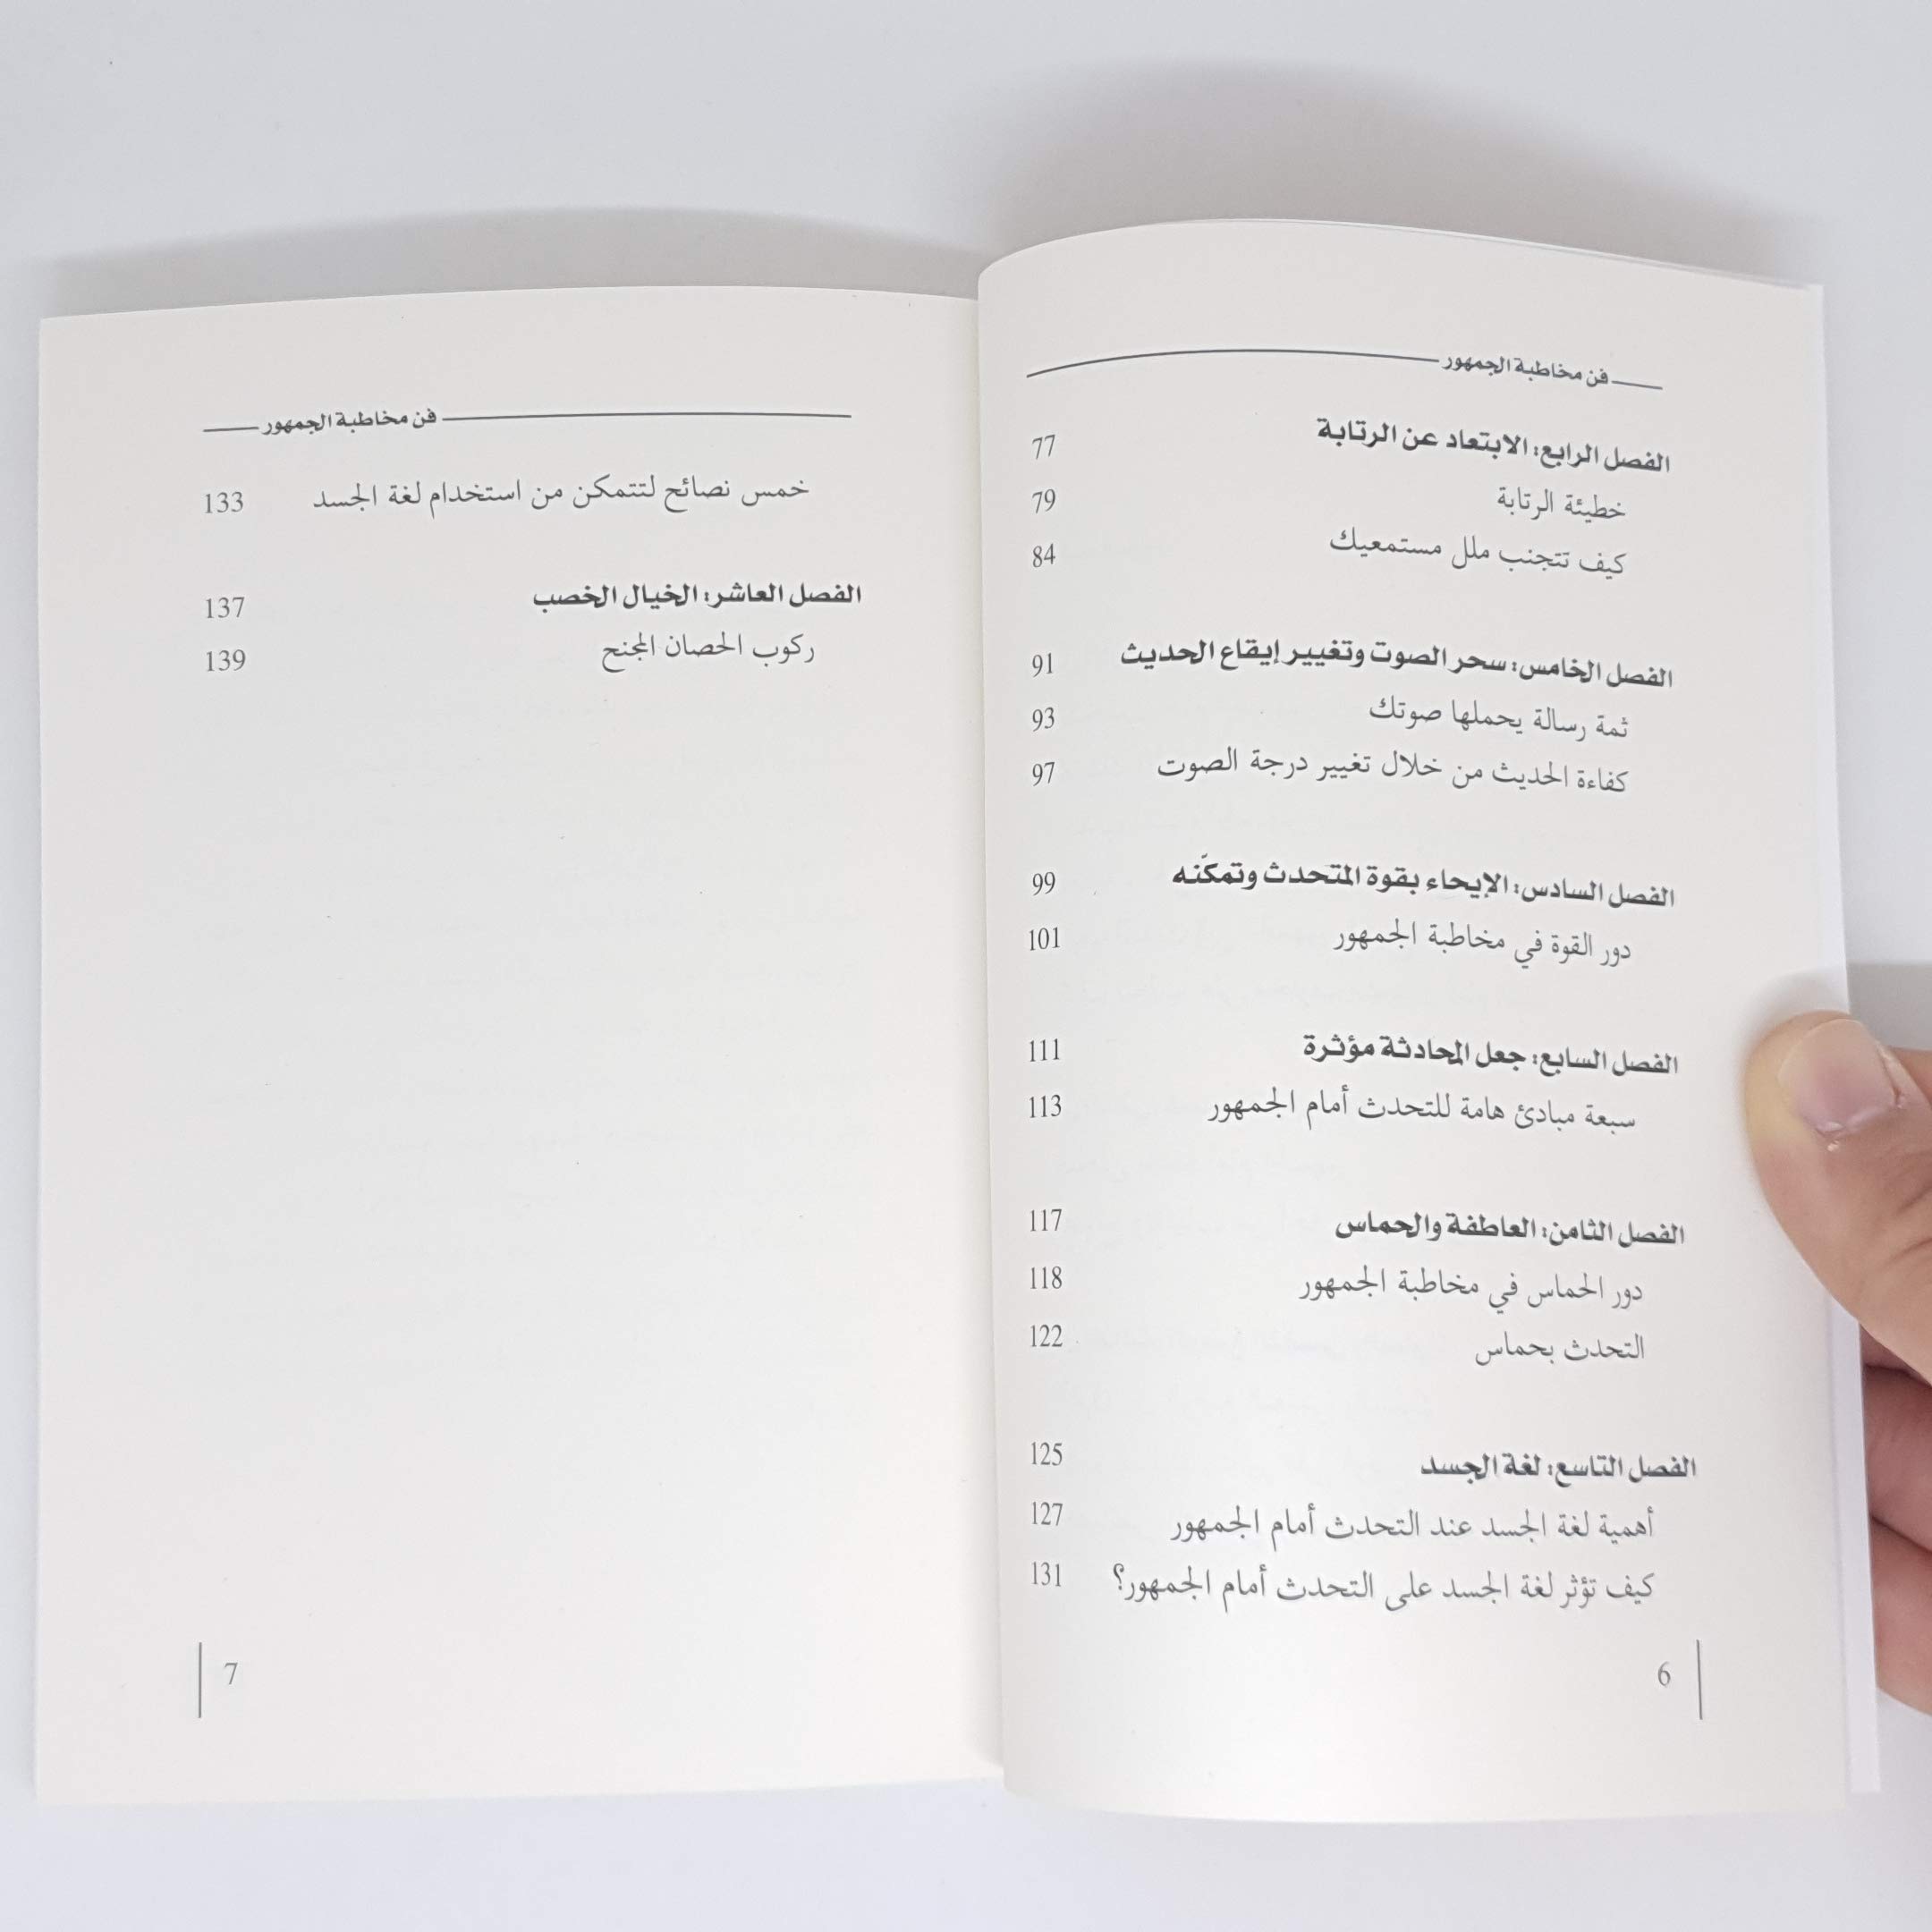 فن مخاطبة الجمهور
الفصل الرابع: الابتعاد عن الرتابة 77
خطيئة الرتابة 79
كيف تتجنب ملل مستمعيك 84
الفصل الخامس: سحر الصوت وتغيير إيقاع الحديث 91
ثمة رسالة يحملها صوتك 93
كفاءة الحديث من خلال تغيير درجة الصوت 97
الفصل السادس: الإيحاء بقوة المتحدث وتمكّنه 99
دور القوة في مخاطبة الجمهور 101
الفصل السابع: جعل المحادثة مؤثرة 111
سبعة مبادئ هامة للتحدث أمام الجمهور 113
الفصل الثامن: العاطفة والحماس 117
دور الحماس في مخاطبة الجمهور 118
التحدث بحماس 122
الفصل التاسع: لغة الجسد 125
أهمية لغة الجسد عند التحدث أمام الجمهور 127
كيف تؤثر لغة الجسد على التحدث أمام الجمهور؟ 131
6
فن مخاطبة الجمهور
خمس نصائح لتتمكن من استخدام لغة الجسد 133
الفصل العاشر: الخيال الخصب 137
ركوب الحصان المجنح 139
7